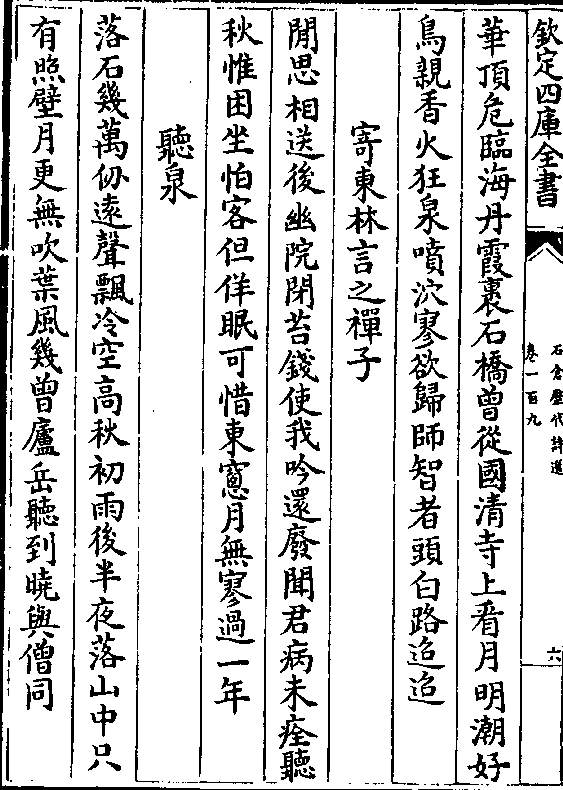 欽定四庫全書
石倉歷代詩選
卷一百九
六
華頂危臨海丹霞裹石橋曾從國清寺上看月明潮好
鳥親香火狂泉噴泬寥欲歸師智者頭白路迢迢
寄東林言之禪子
閒思相送後幽院閉苔錢使我吟還廢聞君病未痊聽
秋惟困坐怕客但佯眠可惜東窻月無寥過一年
聽泉
落石幾萬仞遠聲飄冷空高秋初雨後半夜落山中只
有照壁月更無吹葉風幾曾廬岳聽到曉與僧同